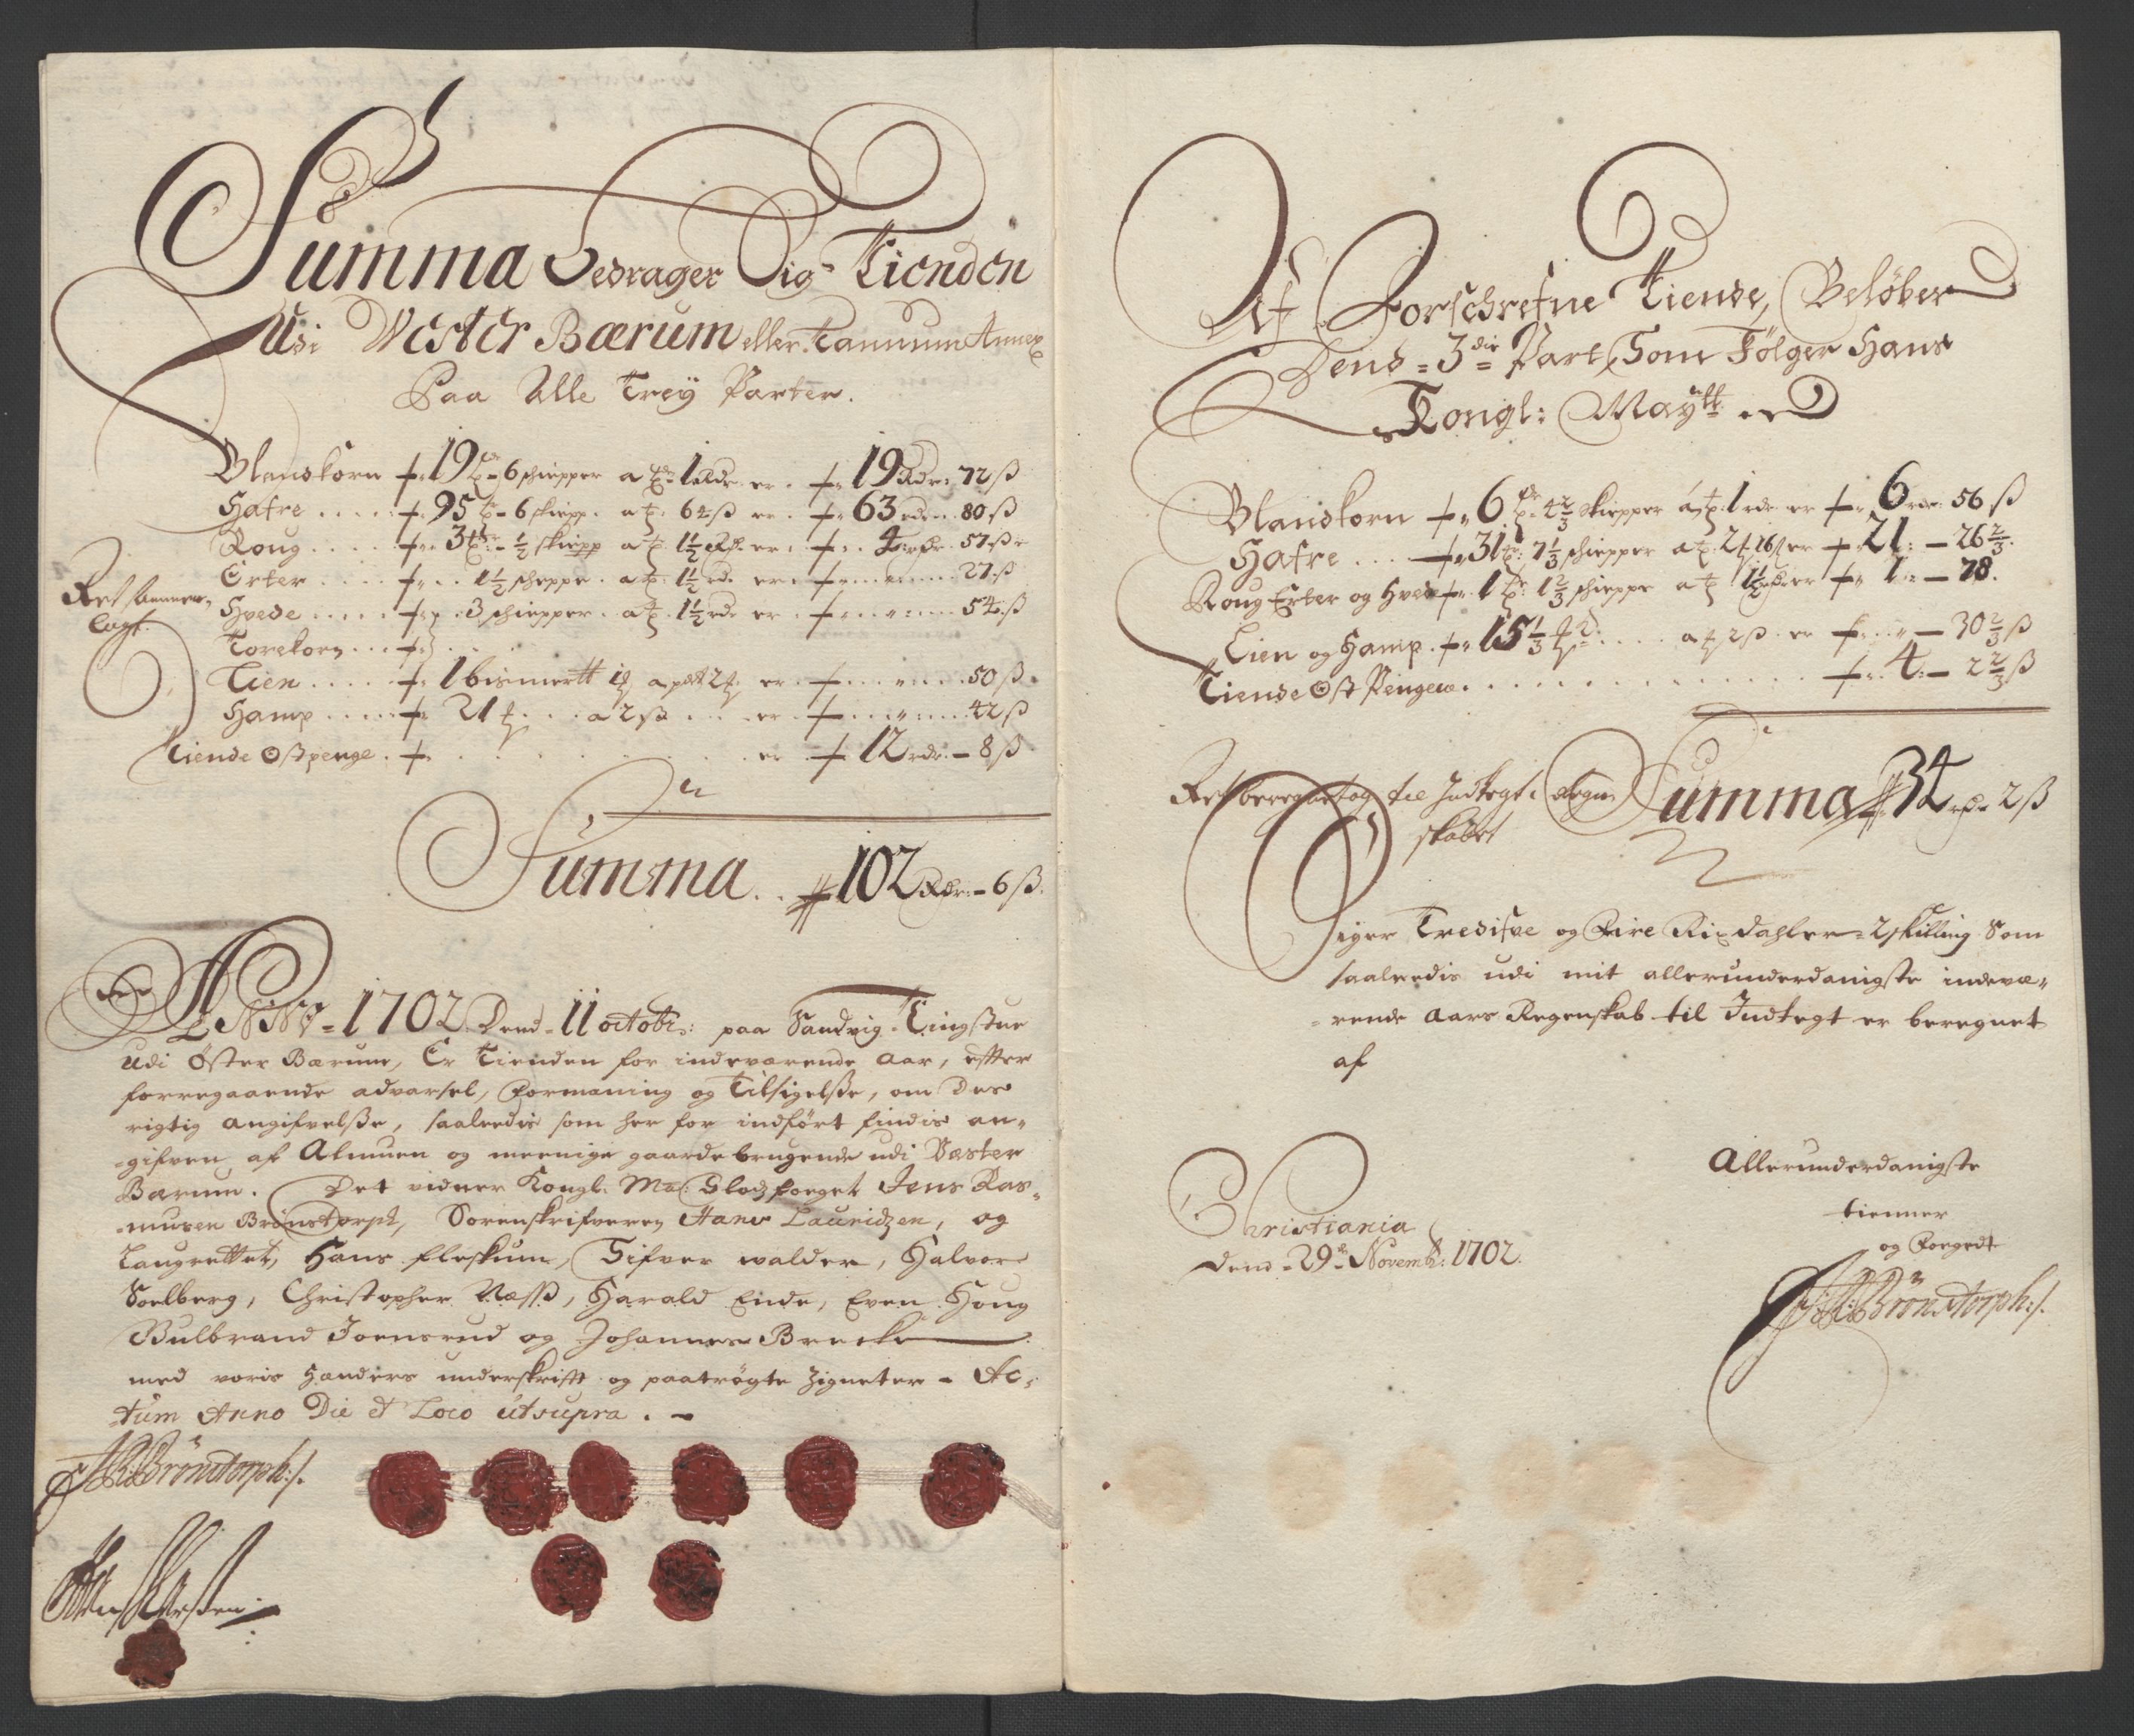 Summa Bedrager Sig Tienden
Udi Wester Bærum eller Tannum Annex
Paa Alle Trey Parter.
Blandkorn 19 tr 6 schiepper a tr 1 rdr er 19 Rdr: 72 ß
Hafre 95 t 6 skiepp. a t. 64 ß er 63 rdr 80 ß
Roug 3 tr ½ skiepp a t. 1½ Rdr er 4 rdr 57 ß
Erter 1½ scheppe. a t. 1½ rdr er 27 ß
Ret sammen-
lagt.
Hvede 3 schiepper. a t. 1½ rdr er 54 ß
Torekorn
Lien 1 bismertt er 50 ß
Hamp 21 a 2 ß er 42 ß
Tiende Ost penge er 12 rdr - 8 ß
Summa 102 Rdr - 6 ß.
Anno 1702. Dend 11 octobr: paa Sandvig Tingstue
udi Øster Bærum, Er Tienden for indeværende Aar, effter
forregaaende advarsel, Formaning og Tilsigelße, om Des
rigtig Angifvelße, saaledis som her for indført findis an-
gifven af Almuen og meenige gaardebrugende udi Vester
Bærum. Det vidner Kongl: Ma: Foeget Jens Ras-
musen Brønstorph, Sorenskrifveren Hans Lauridzen, og
Laugrettet, Hans Fleskum, Sifver walder, Halvor
Soelberg, Christopher Næss, Harald Ende, Even Houg
Gulbrand Joensrud og Johannes Brecke
med voris Hænders underskrifft og paatrøgte Zigneter - Ac-
tum Anno Die et Loco ut supra.
JRBrönstorph:/.
Af Forschrefne Tiende, Beløber
Dend 3die Part, Som Følger Hans
Kongl: Maytt
Blandkorn 6 tr 4⅔ skiepper a t. 1 rdr er 6 rdr 56 ß
Hafre 31 t: 7⅓ schiepper a t. er 21: - 26⅔.
Roug Erter og Hvede 1 t: 1⅔ schieppe a t 1½ rdr er 1: - 78.
Lien og Hamp. 15⅓ a 2 ß er - 30⅔ ß
Tiende Ost Pengene. 4: - 2⅔ ß
Ret beregnet og til Indtegt i Regn
skabet
Summa 34 rdr 2 ß
Siger Tredisve og Fire Rixdahler 2 skilling Som
saaledis udi mit allerunderdanigste indevæ-
rende Aars Regenskab til Indtegt er beregnet
af
Christiania
dend 29de Novemb: 1702.
Allerunderdanigste
tienner
og Foegedt
JRBrönstorph:/.